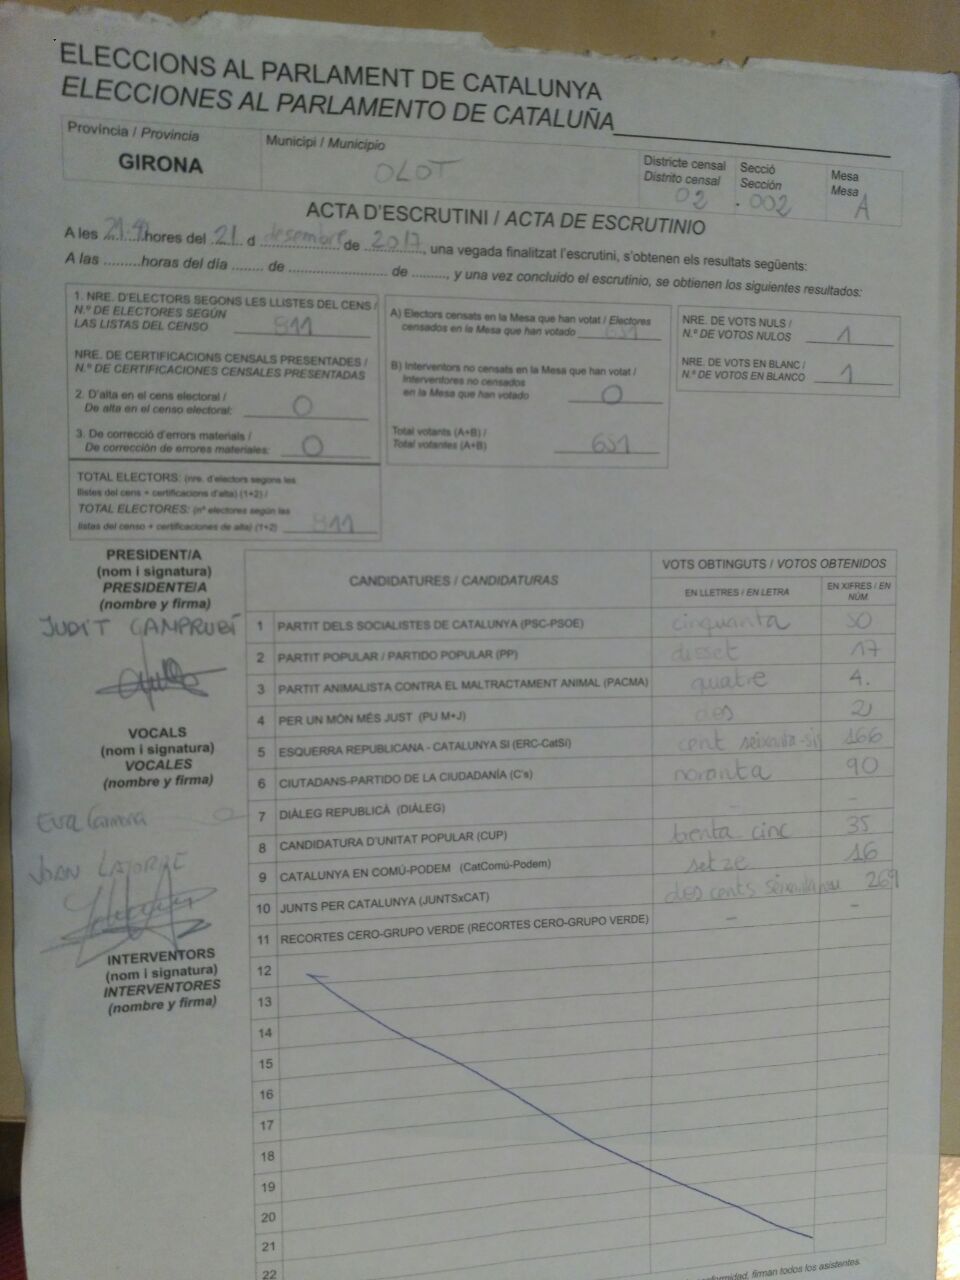 ELECCIONS AL PARLAMENT DE CATALUNYA
ELECCIONES AL PARLAMENTO DE CATALUÑA
Província / Provincia
GIRONA
Municipi / Municipio
OLOT
Districte censal
Distrito censal
02
Secció
Sección
002
Mesa
Mesa
A
ACTA D'ESCRUTINI / ACTA DE ESCRUTINIO
A les ........hores del 21 d desembre de 2017, una vegada finalitzat l'escrutini, s'obtenen els resultats següents:
A las .........horas del día ........ de ......................... de ........., y una vez concluido el escrutinio, se obtienen los siguientes resultados:
1. NRE. D'ELECTORS SEGONS LES LLISTES DEL CENS /
N.º DE ELECTORES SEGÚN
LAS LISTAS DEL CENSO 811
NRE. DE CERTIFICACIONS CENSALS PRESENTADES /
N.º DE CERTIFICACIONES CENSALES PRESENTADAS
2. D'alta en el cens electoral /
De alta en el censo electoral: 0
3. De correcció d'errors materials /
De corrección de errores materiales: 0
TOTAL ELECTORS: (nre. d'electors segons les
llistes del cens + certificacions d'alta) (1+2) /
TOTAL ELECTORES: (nº electores según las
listas del censo + certificaciones de alta) (1+2) 811
A) Electors censats en la Mesa que han votat / Electores
censados en la Mesa que han votado 651
B) Interventors no censats en la Mesa que han votat /
Interventores no censados
en la Mesa que han votado 0
Total votants (A+B) /
Total votantes (A+B) 651
NRE. DE VOTS NULS /
N.º DE VOTOS NULOS 1
NRE. DE VOTS EN BLANC /
N.º DE VOTOS EN BLANCO 1
PRESIDENT/A
(nom i signatura)
PRESIDENTE/A
(nombre y firma)
JUDIT CAMPRUBÍ
VOCALS
(nom i signatura)
VOCALES
(nombre y firma)
Eva
JOAN LATORRE
INTERVENTORS
(nom i signatura)
INTERVENTORES
(nombre y firma)
CANDIDATURES / CANDIDATURAS
VOTS OBTINGUTS / VOTOS OBTENIDOS
EN LLETRES / EN LETRA
EN XIFRES / EN NÚM
1 PARTIT DELS SOCIALISTES DE CATALUNYA (PSC-PSOE) cinquanta 50
2 PARTIT POPULAR / PARTIDO POPULAR (PP) disset 17
3 PARTIT ANIMALISTA CONTRA EL MALTRACTAMENT ANIMAL (PACMA) quatre 4.
4 PER UN MÓN MÉS JUST (PU M+J) dos 2
5 ESQUERRA REPUBLICANA - CATALUNYA SI (ERC-CatSí) cent seixanta-sis 166
6 CIUTADANS-PARTIDO DE LA CIUDADANÍA (C's) noranta 90
7 DIÀLEG REPUBLICÀ (DIÀLEG) - -
8 CANDIDATURA D'UNITAT POPULAR (CUP) trenta cinc 35
9 CATALUNYA EN COMÚ-PODEM (CatComú-Podem) setze 16
10 JUNTS PER CATALUNYA (JUNTSxCAT) dos cents seixanta nou 269
11 RECORTES CERO-GRUPO VERDE (RECORTES CERO-GRUPO VERDE) - -
12
13
14
15
16
17
18
19
20
21
22
conformidad, firman todos los asistentes.